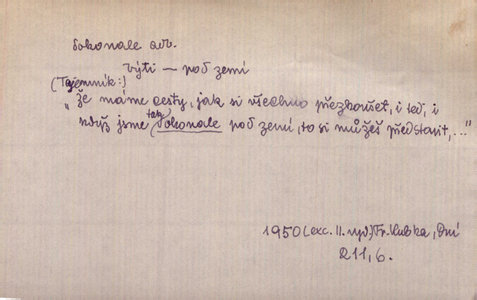 dokonale adv.
býti — pod zemí
(Tajemník:)
„že máme cesty, jak si všechno přezkoušet, i teď, i
když jsme tak dokonale pod zemí, to si můžeš představit, ..."
1950 (exc. II. vyd.) Fr. Kubka, Dni
211, 6.